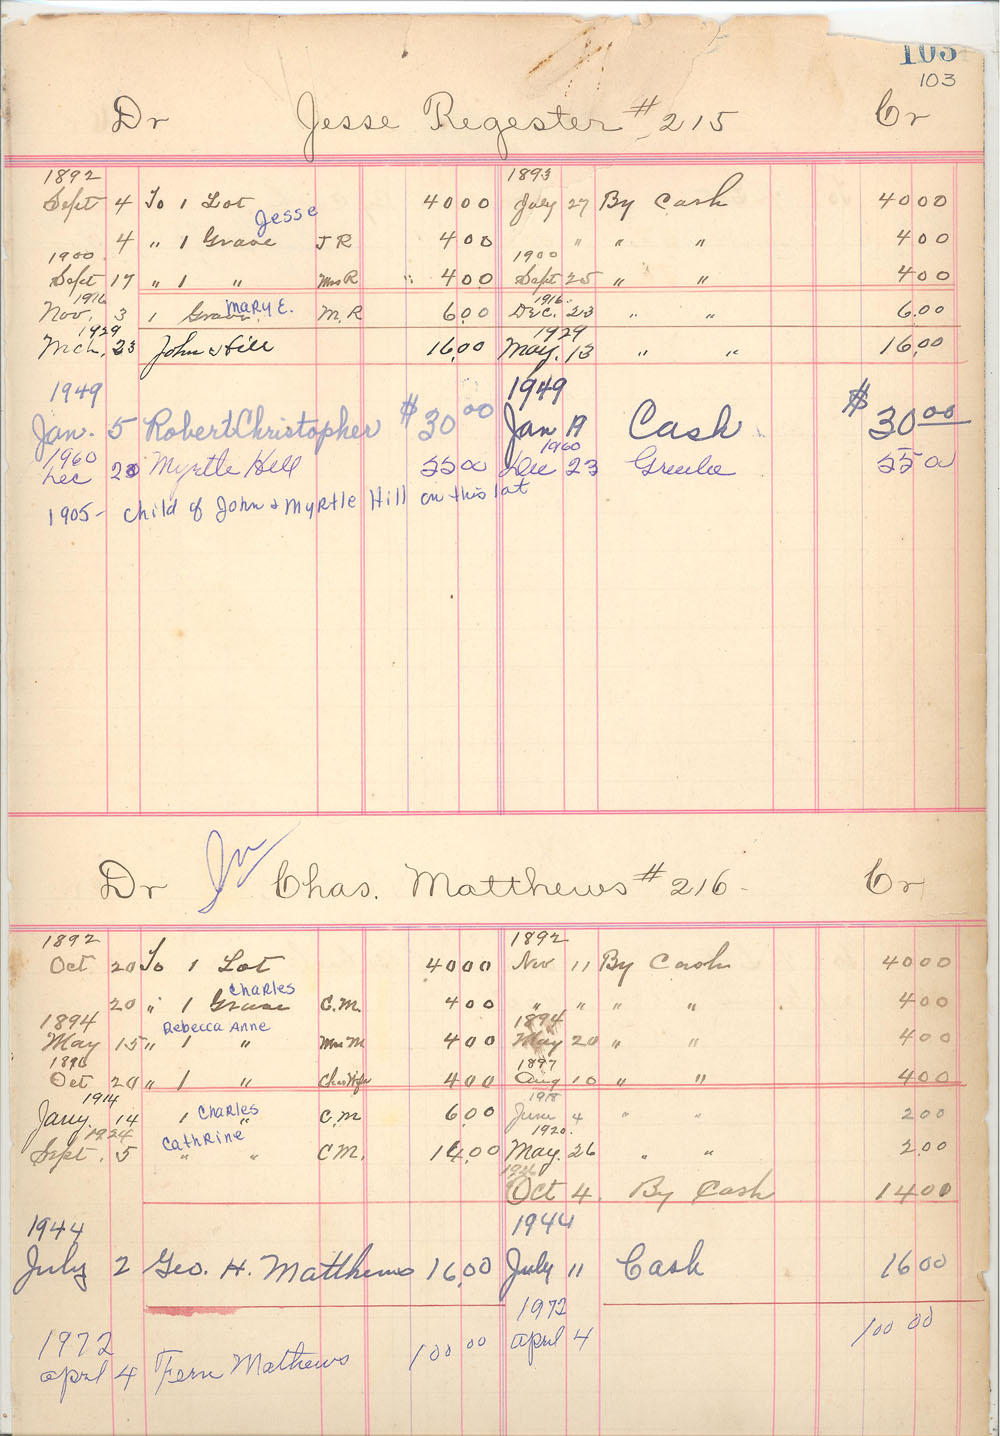 103
103
Dr Jesse Regester #215 Cr
1892 1893
Sept 4 To 1 Lot 4000 July 27 By Cash 4000
Jesse
4 " 1 Grave J R 400 " " " 400
1900 1900
Sept 17 " 1 " Mrs R 400 Sept 25 " " 400
1916 Mary E. 1916
Nov. 3 1 Grave M. R 6.00 Dec. 23 " " 6.00
1929 1929
Mch. 23 John Hill 16.00 May. 13 " " 16.00
1949 1949
Jan. 5 Robert Christopher $30 00 Jan 19 Cash $30 00
1960 1960
Dec 20 Myrtle Hill 55 00 Dec 23 55 00
1905- child of John & Myrtle Hill on this lot
Dr Chas. Matthews #216- Cr
1892 1892
Oct 20 To 1 Lot 4000 Nov 11 By Cash 4000
Charles
20 " 1 Grave C.M. 400 " " " " 400
1894 Rebecca Anne 1894
May 15 " 1 " Mrs M 400 May 20 " " 400
1896 1897
Oct 20 " 1 " 400 Aug 10 " " 400
1914 1918
Jany. 14 1 Charles " C.M 6.00 June 4 " " 200
1924 Cathrine 1920.
Sept. 5 " " C M. 14.00 May. 26 " " 2.00
Oct 4. By Cash 1400
1944 1944
July 2 Geo. H. Matthews 16.00 July 11 Cash 1600
1972 1972
April 4 Fern Mathews 100 00 April 4 100 00